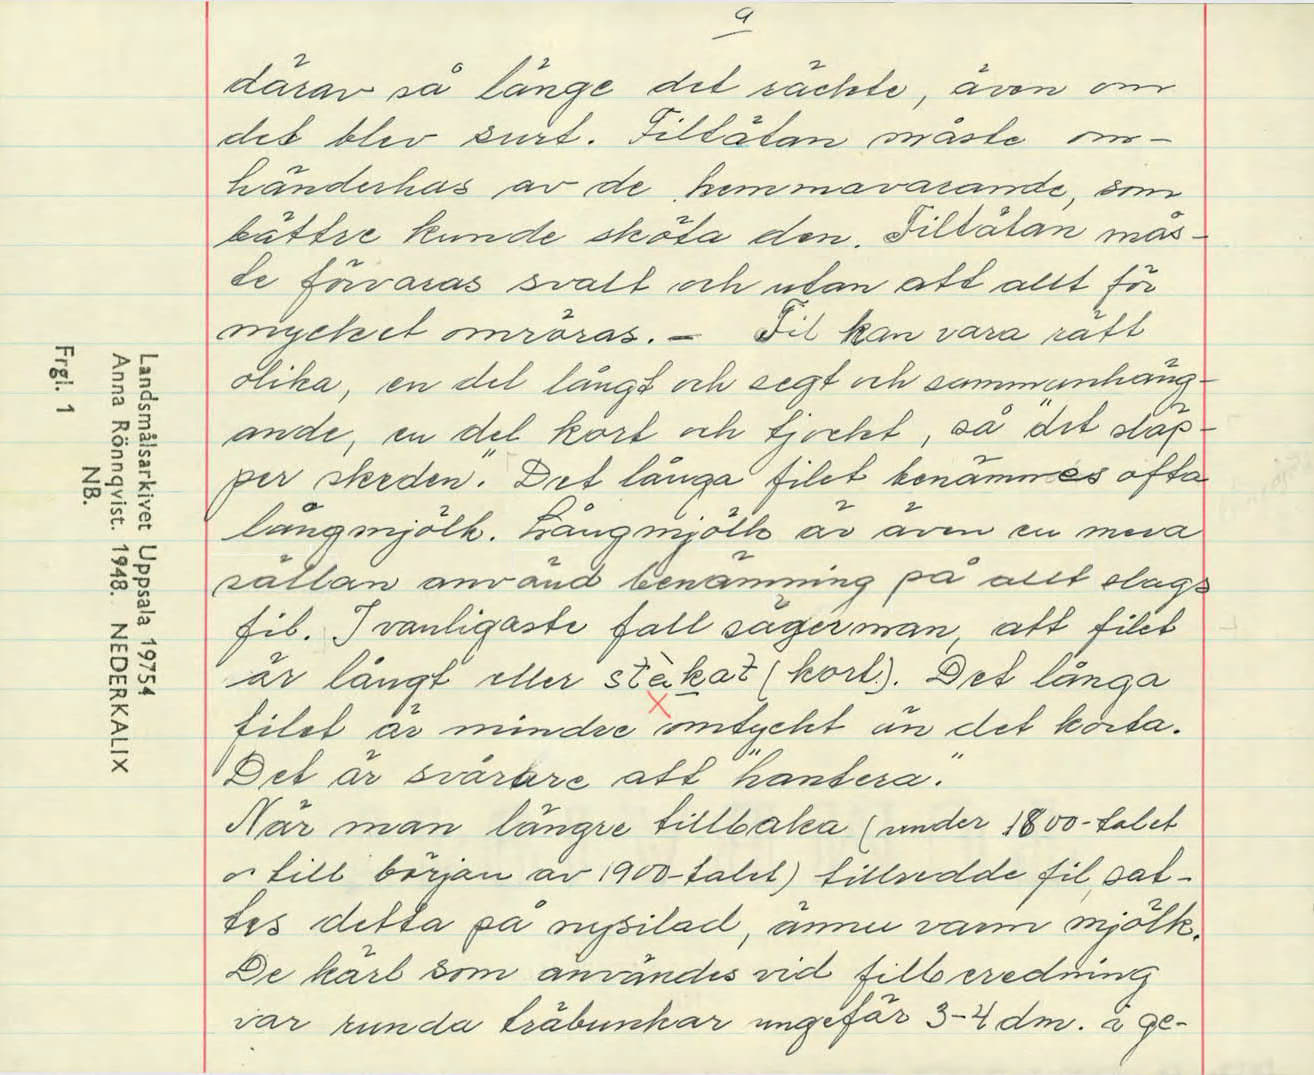 9
därav så länge det räckte, även om
det blev surt. Filtåtan måste om-
händerhas av de hemmavarande, som
bättre kunde sköta den. Filtåtan mås-
te förvaras svalt och utan att allt för
mycket omröras. – Fil kan vara rätt
olika, en del långt och segt och sammanhäng-
ande, en del kort och tjockt, så "det släp-
per skeden". Det långa filet benämnes ofta
långmjölk. Långmjölk är även en mera
sällan använd benämning på allt slags
fil. I vanligaste fall säger man, att filet
är långt eller stèkat (kort). Det långa
filet är mindre omtyckt än det korta.
Det är svårare att "hantera".
När man längre tillbaka (under 1800-talet
o till början av 1900-talet) tillredde fil, sat-
tes detta på nysilad, ännu varm mjölk.
De kärl som användes vid filberedning
var runda träbunkar ungefär 3-4 dm. i ge-
Landsmålsarkivet Uppsala 19754
Anna Rönnqvist. 1948. NEDERKALIX
NB.
Frgl. 1